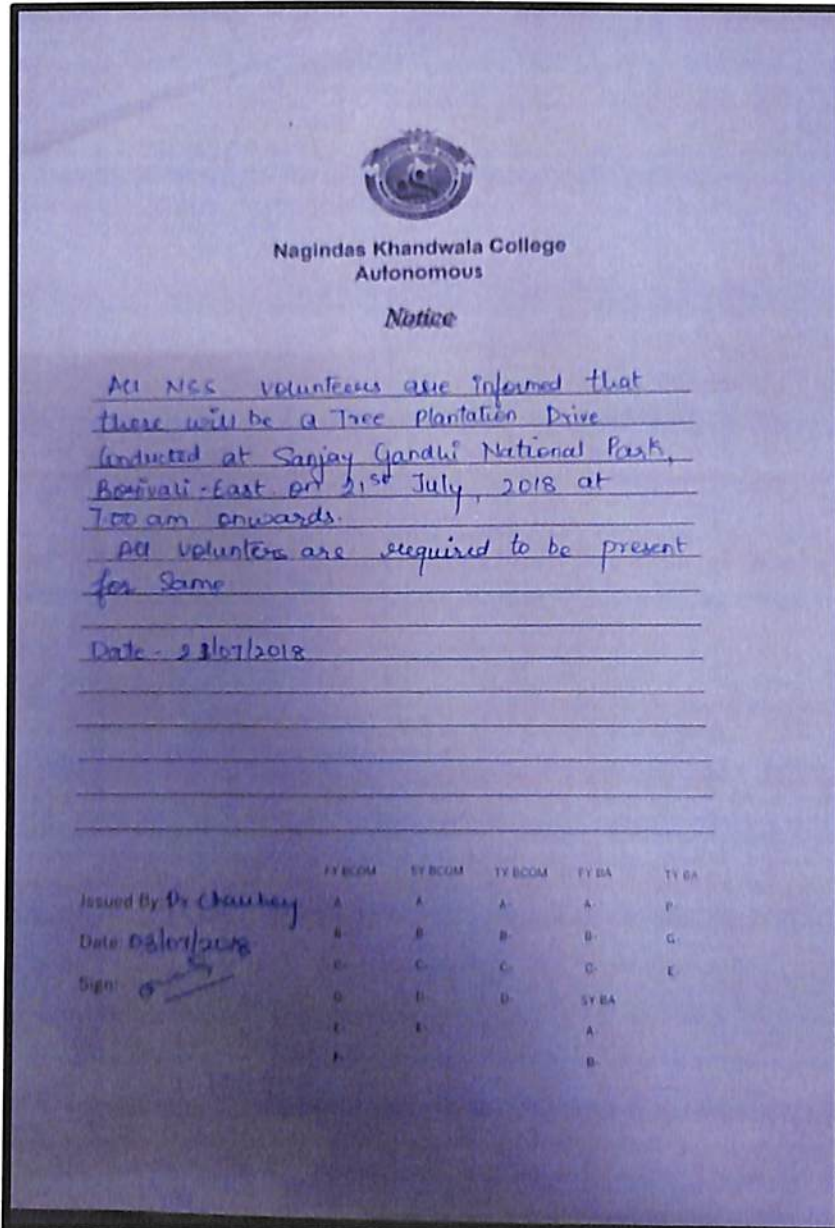 Nagindas Khandwala College
Autonomous
Notice
All NSS volunteers are informed that
there will be a Tree Plantation Drive
Conducted at Sanjay Gandhi National Park,
Borivali-East on 21st July, 2018 at
7.00 am onwards.
All volunters are required to be present
for Same
Date - 21/07/2018
FY BCOM SY BCOM TY BCOM FY BA TY BA
Issued By: Dr Chaubey A- A- A- A- P-
Date: 03/07/2018 B- B- B- B- G-
Sign: C- C- C- C- E-
D- D- D- SY BA
E- E- A-
F- B-